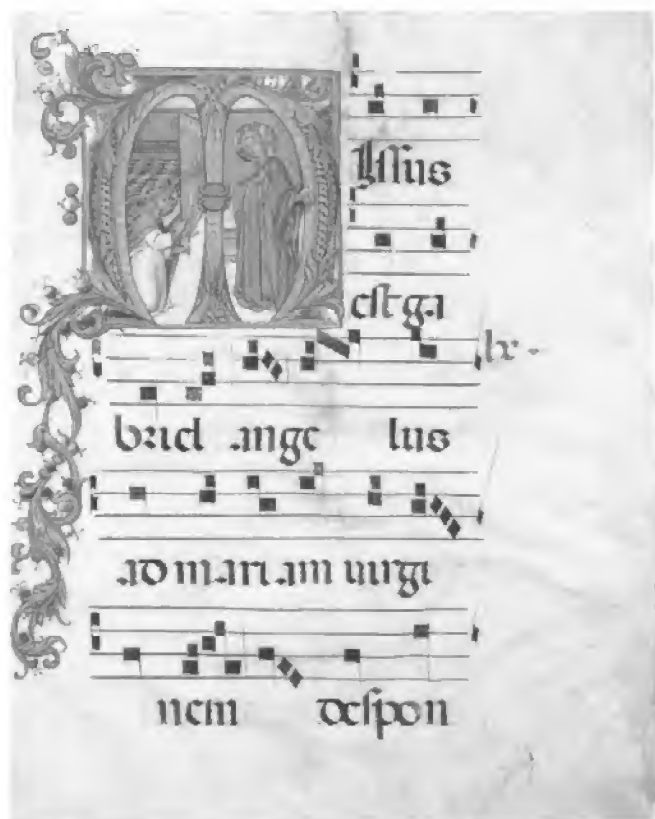 Missus
est ga
briel ange lus
ad mariam uirgi
nem despon